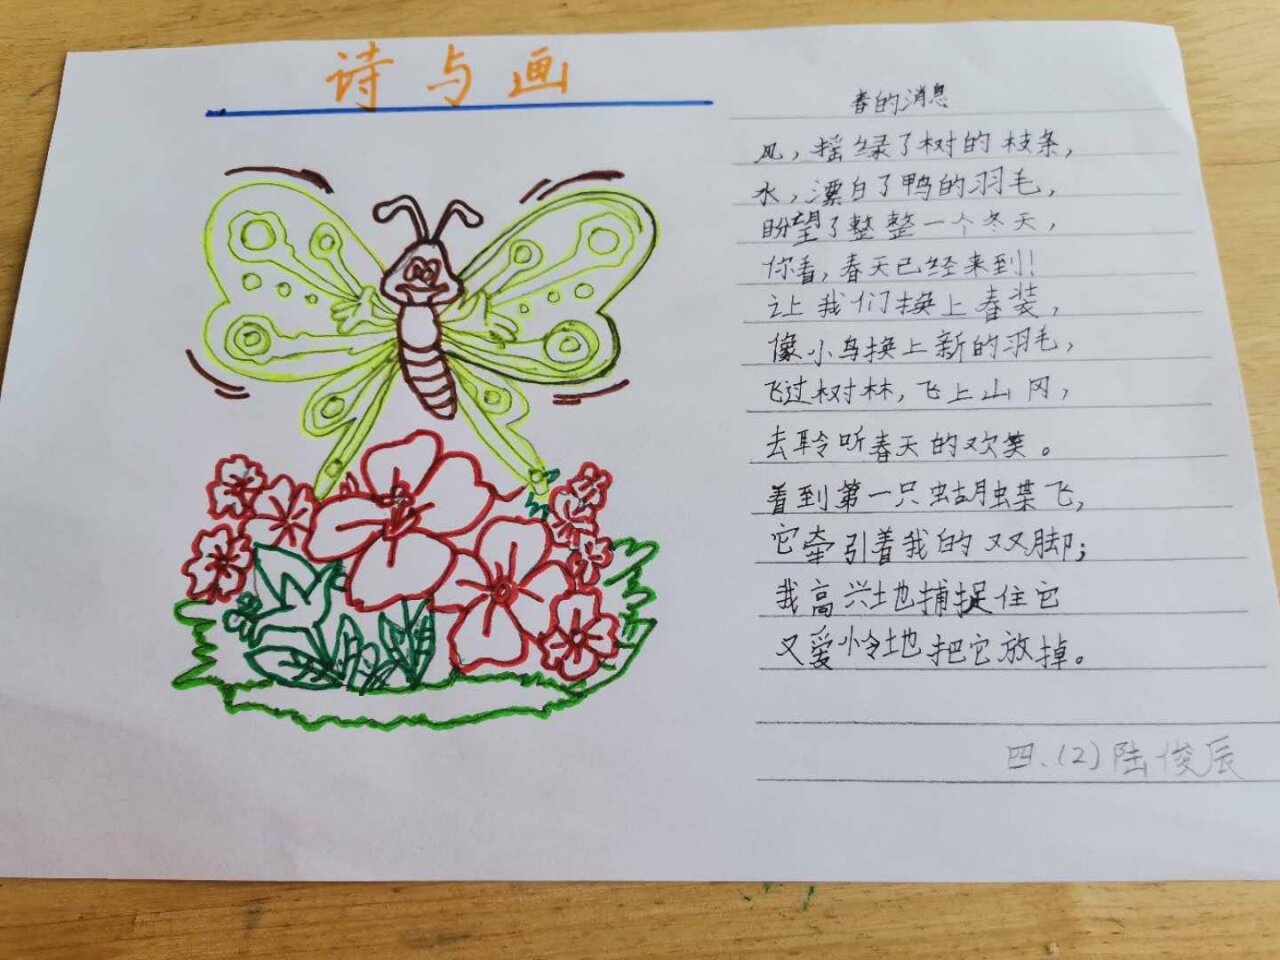 诗与画
春的消息
风，摇绿了树的枝条，
水，漂白了鸭的羽毛，
盼望了整整一个冬天，
你看，春天已经来到！
让我们换上春装，
像小鸟换上新的羽毛，
飞过树林，飞上山冈，
去聆听春天的欢笑。
看到第一只蝴蝶飞，
它牵引着我的双脚；
我高兴地捕捉住它
又爱怜地把它放掉。
四.(2)陆俊辰